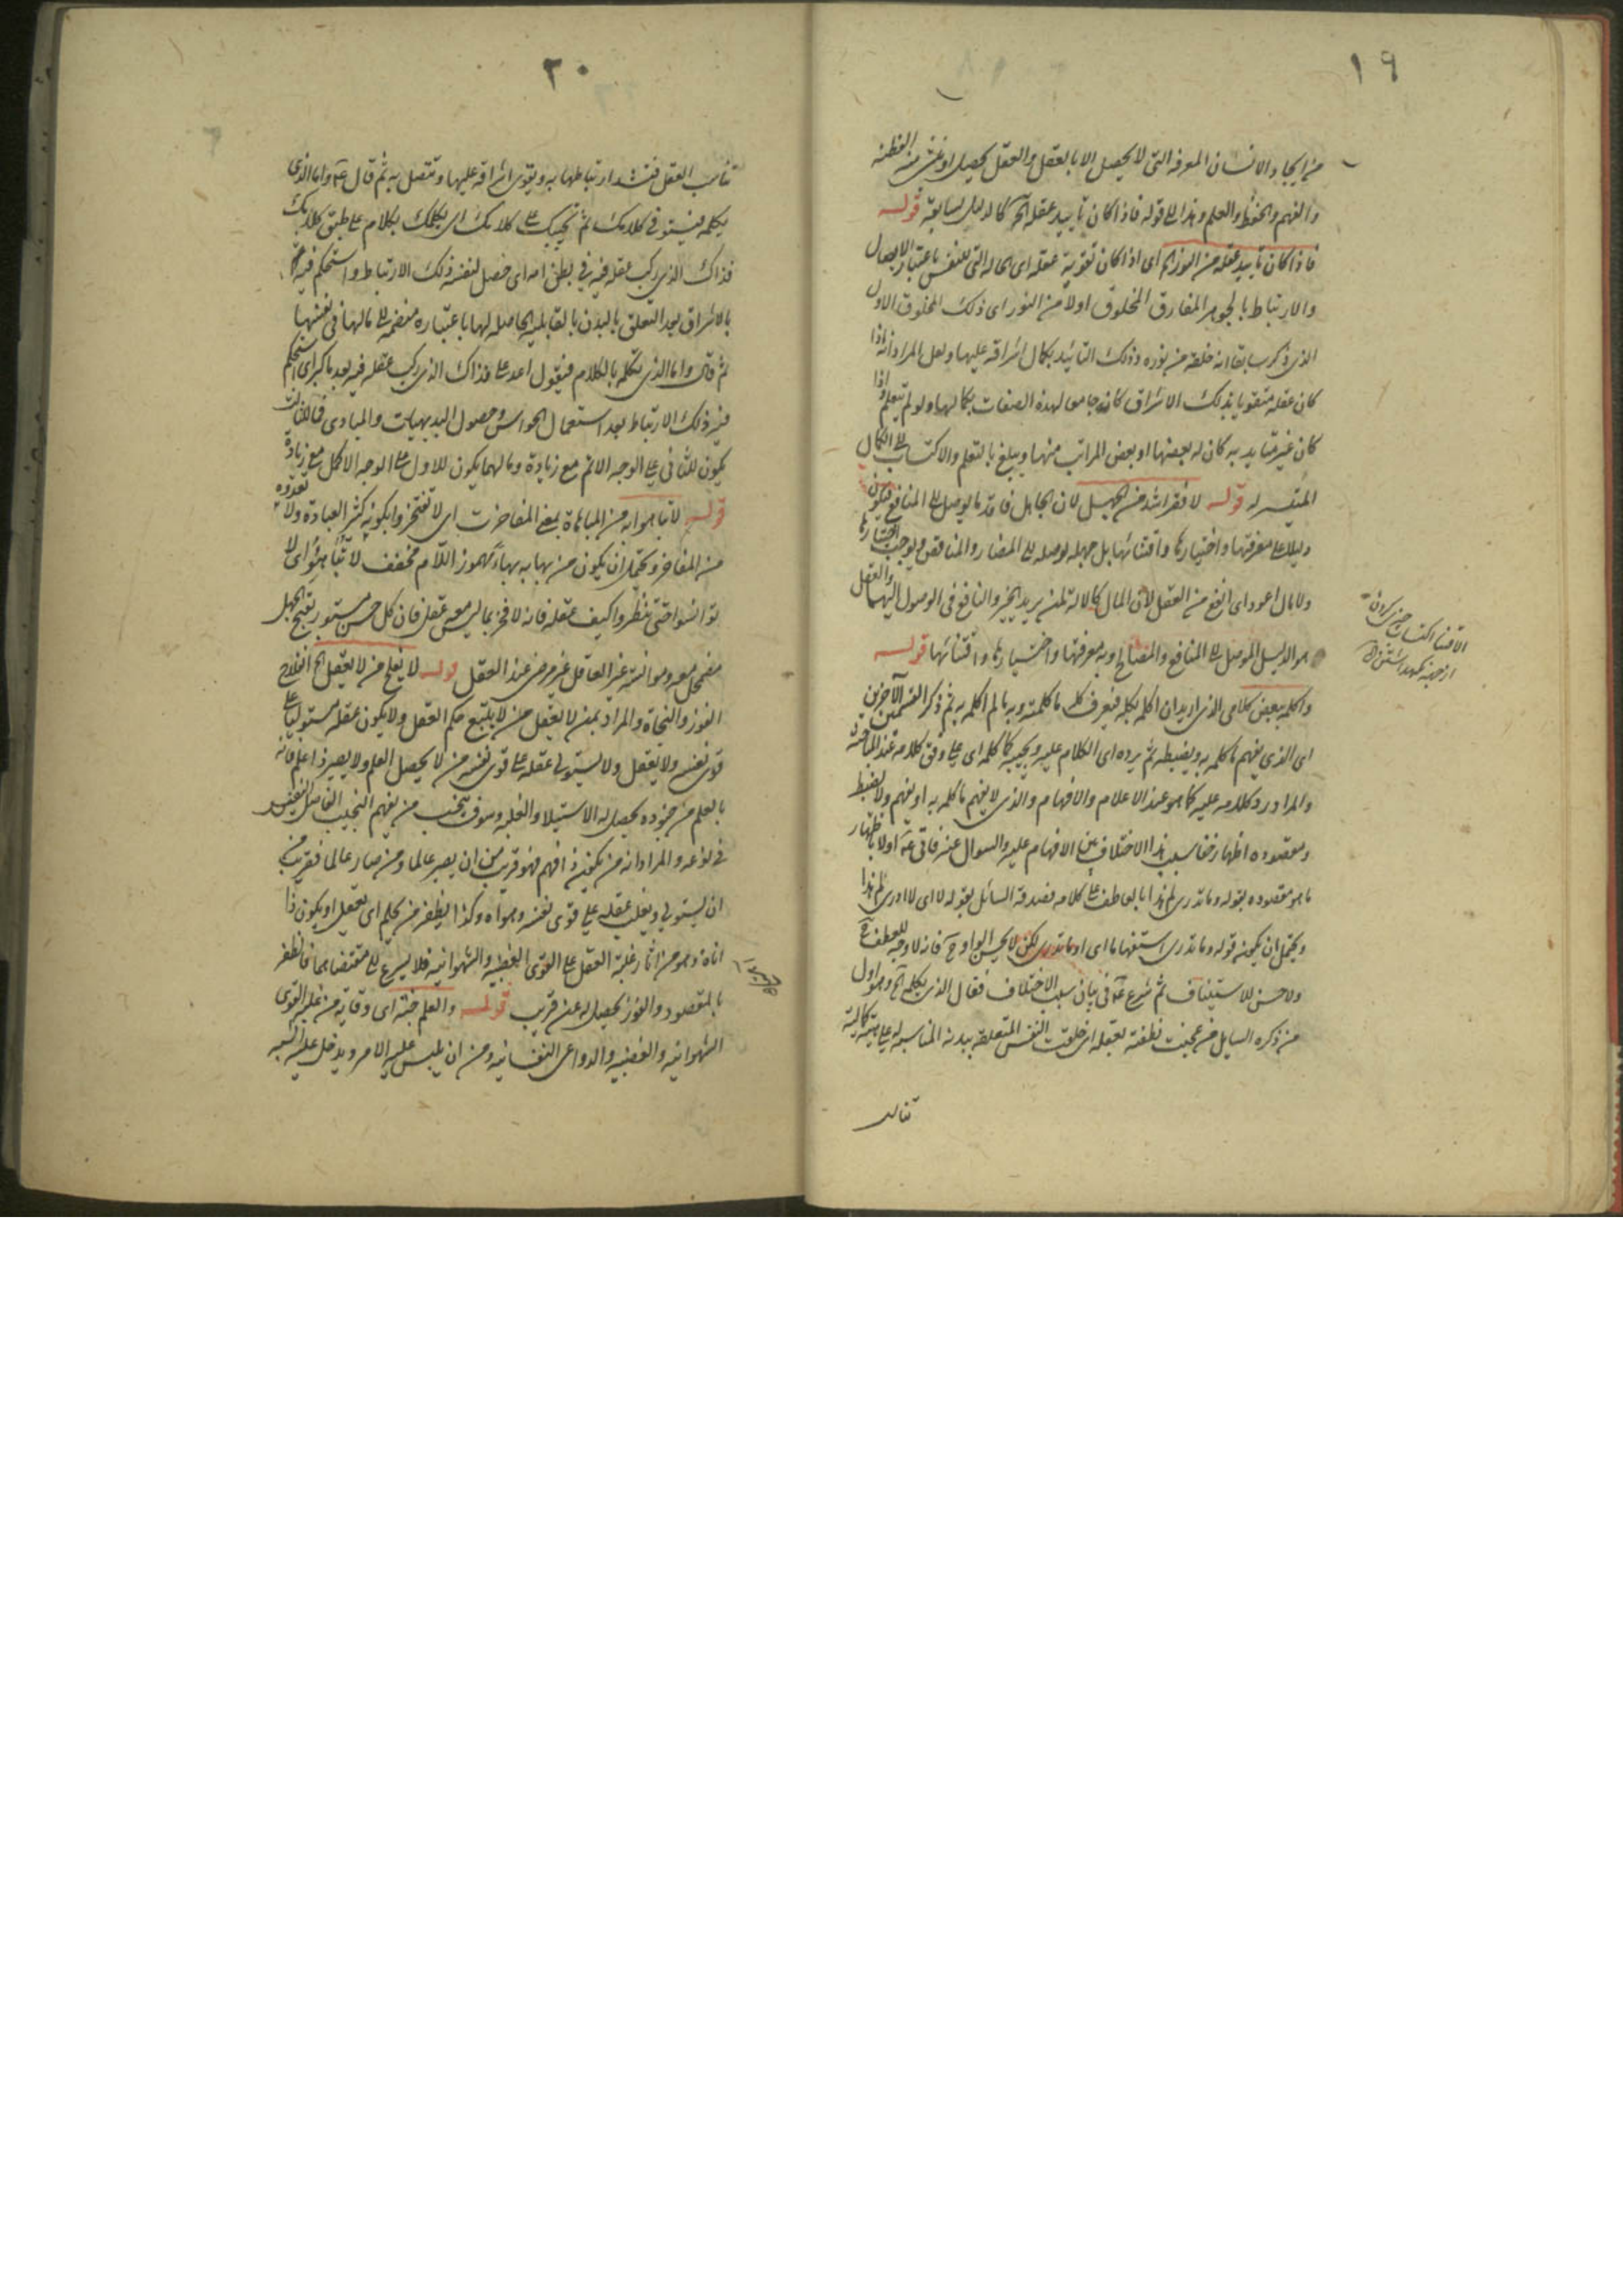 ١٩
من ايجاد الانسان المعرفة التى لا يحصل الا بالعقل والعقل يحصل او ينشى منه الفطنة
والفهم والحفظ والعلم وهذا الى قوله فاذا كان تأييد عقله آه كالدليل لسابقه قوله
فاذا كان تأييد عقله من النور آه اى اذا كان تقوية عقله اى الحالة التى للنفس باعتبار الاتصال
والارتباط بالجوهر المفارق المخلوق اولا من النور اى ذلك المخلوق الاول
الذى ذكر سابقا انه خلقه من نوره وذلك التأييد بكمال اشراقه عليها ولعل المراد انه اذا
كان عقله متقويا بذلك الاشراق كان جامعا لهذه الصفات بكمالها ولو لم يتعلم واذا
كان غير متأيد به كان له بعضها او بعض المراتب منها ويبلغ بالتعلم والاكتساب الى الكمال
المتيسر له قوله لا فقر اشد من الجهل لان الجاهل فاقد ما يوصل الى المنافع فيكون
دليلا على معرفتها واختيارها واقتنائها بل جهله يوصله الى المضار والمناقص ويوجب اختيارها
ولا مال اعود اى انفع من العقل لان المال كالالة لمن يريد الخير والنافع فى الوصول اليهما والعقل
هو الدليل الموصل الى المنافع والمصالح وبه معرفتها واختيارها واقتنائها قوله
واكلمه ببعض كلامى الذى اريد ان اكلم بكله فيعرف كله ما كلمته وبه ما لم اكلمه به ثم ذكر القسمين الآخرين
اى الذى يفهم ما كلمه به ويضبطه ثم يرده اى الكلام عليه ويجيبه كما كلمه اى على وفق كلامه عند المباحثة
والمراد رد كلامه عليه كما هو عند الاعلام والافهام والذى لا يفهم ما كلمه به او يفهم ولا يضبط
ومقصوده اظهار خفا سبب هذا الاختلاف بين الافهام عليه والسوال عنه فاتى عليه اولا باظهار
ما هو مقصوده بقوله وما تدرى لم هذا بالعاطف على كلامه فصدقه السائل بقوله لا اى لا ادرى لم هذا
ويحتمل ان يكون قوله وما تدرى استفهاما اى اوما تدرى لكن لا يحسن الواو ح فانه لا وجه للعطف ح
ولا حسن للاستيناف ثم شرع عليه فى بيان سبب الاختلاف فقال الذى تكلمه آه وهو اول
من ذكره السايل من عجنت نطفته بعقله اى خلقت النفس المتعلقة ببدنه المناسبة له على هيئة كمالية
تناسب
الاقتنا اكتساب چيزى كردن
٢٠
تناسب العقل فتشتد ارتباطها به ويقوى اشراقه عليها وتتصل به ثم قال عليه واما الذى
تكلمه فيستوفى كلامك ثم يجيبك على كلامك اى يكلمك بكلام على طبق كلامك
فذاك الذى ركب عقله فيه فى بطن امه اى حصل لنفسه ذلك الارتباط واستحكم فيه
بالاشراق بعد التعلق بالبدن بالقابلية الحاصلة لها باعتباره منضمة الى ما لها فى نفسها
ثم قال واما الذى تكلمه بالكلام فيقول اعد على فذاك الذى ركب عقله فيه بعد ما كبر اى استحكم
فيه ذلك الارتباط بعد استعمال الحواس وحصول البديهيات والمبادى فالثالث
يكون للثانى على الوجه الاتم مع زيادة وما لهما يكون للاول على الوجه الاكمل مع زيادة
قوله لا تباهوا به من المباهاة بمعنى المفاخرت اى لا تفتخروا بكونه كثير العبادة ولا تعدوه
من المفاخر ويحتمل ان يكون من بهأ به بهاء مهموز اللام مخفف لا تبأهؤا اى لا
تؤانسوا حتى تنظروا كيف عقله فانه لا فخر بما ليس معه عقل فان كل حسن مستور بقبح الجهل
مضمحل معه ومؤانسة غير العاقل غير مرضى عند العقل قوله لا يفلح من لا يعقل آه الفلاح
الفوز والنجاة والمراد بمن لا يعقل من لا يتبع حكم العقل ولا يكون عقله مستوليا على
قوى نفسه ولا يعقل ولا يستولى عقله على قوى نفسه من لا يحصل العلم ولا يصير ذا علم فانه
بالعلم من جنوده يحصل له الاستيلا والغلبة وسوف ينجب من يفهم النجيب الفاضل النفيس
فى نوعه والمراد انه من يكون ذا فهم فهو قريب من ان يصير عالما ومن صار عالما فقريب من
ان يستولى ويغلب عقله على قوى نفسه وهواه وكذا يظفر من يحلم اى يعقل او يكون ذا
اناة وهو من اثار غلبة العقل على القوى الغضبية والشهوانية فلا يسرع الى مقتضاهما فالظفر
بالمقصود والفوز يحصل له عن قريب قوله والعلم جنة اى وقاية من غلبة القوى
الشهوانية والغضبية والدواعى النفسانية ومن ان يلبس عليه الامر ويدخل عليه الشبه